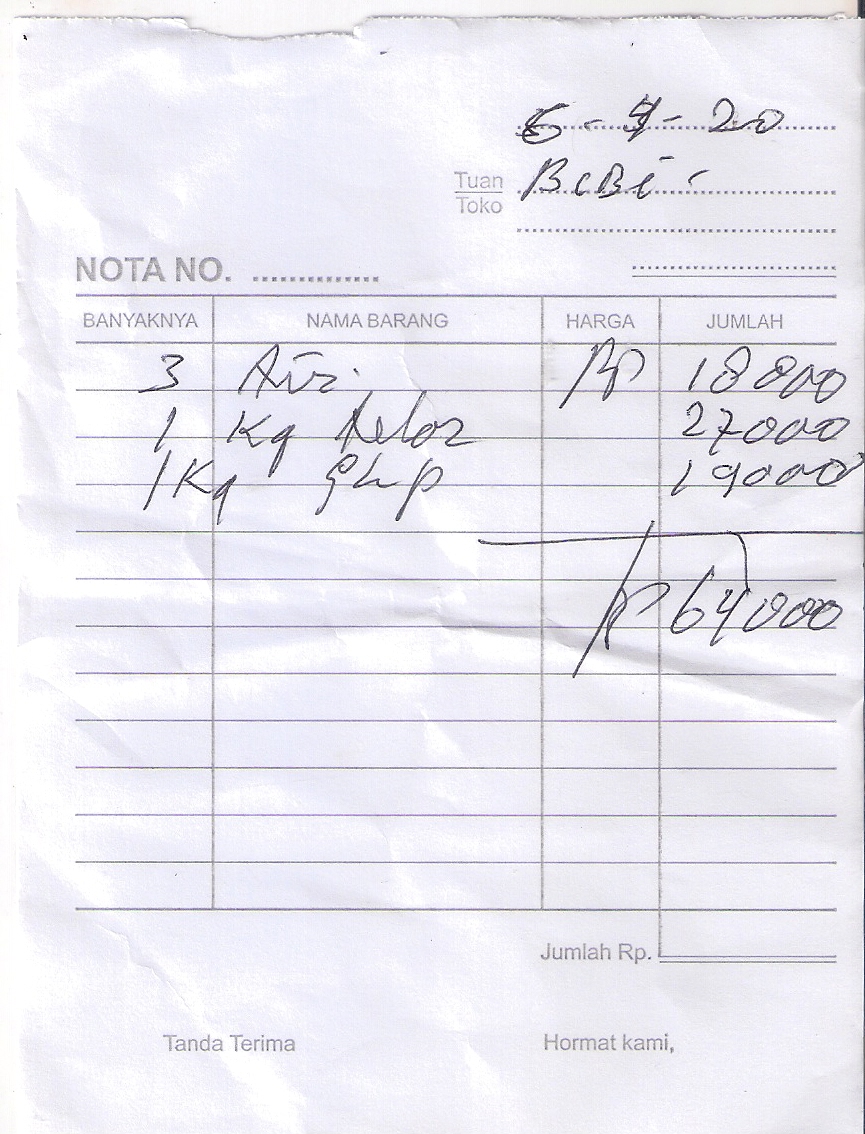 6-4-20
Tuan BiBi
Toko
NOTA NO. ................
BANYAKNYA NAMA BARANG HARGA JUMLAH
3 Air Rp 18000
1 Kg Telor 27000
1 Kg 19000
Rp 64000
Jumlah Rp.
Tanda Terima Hormat kami,